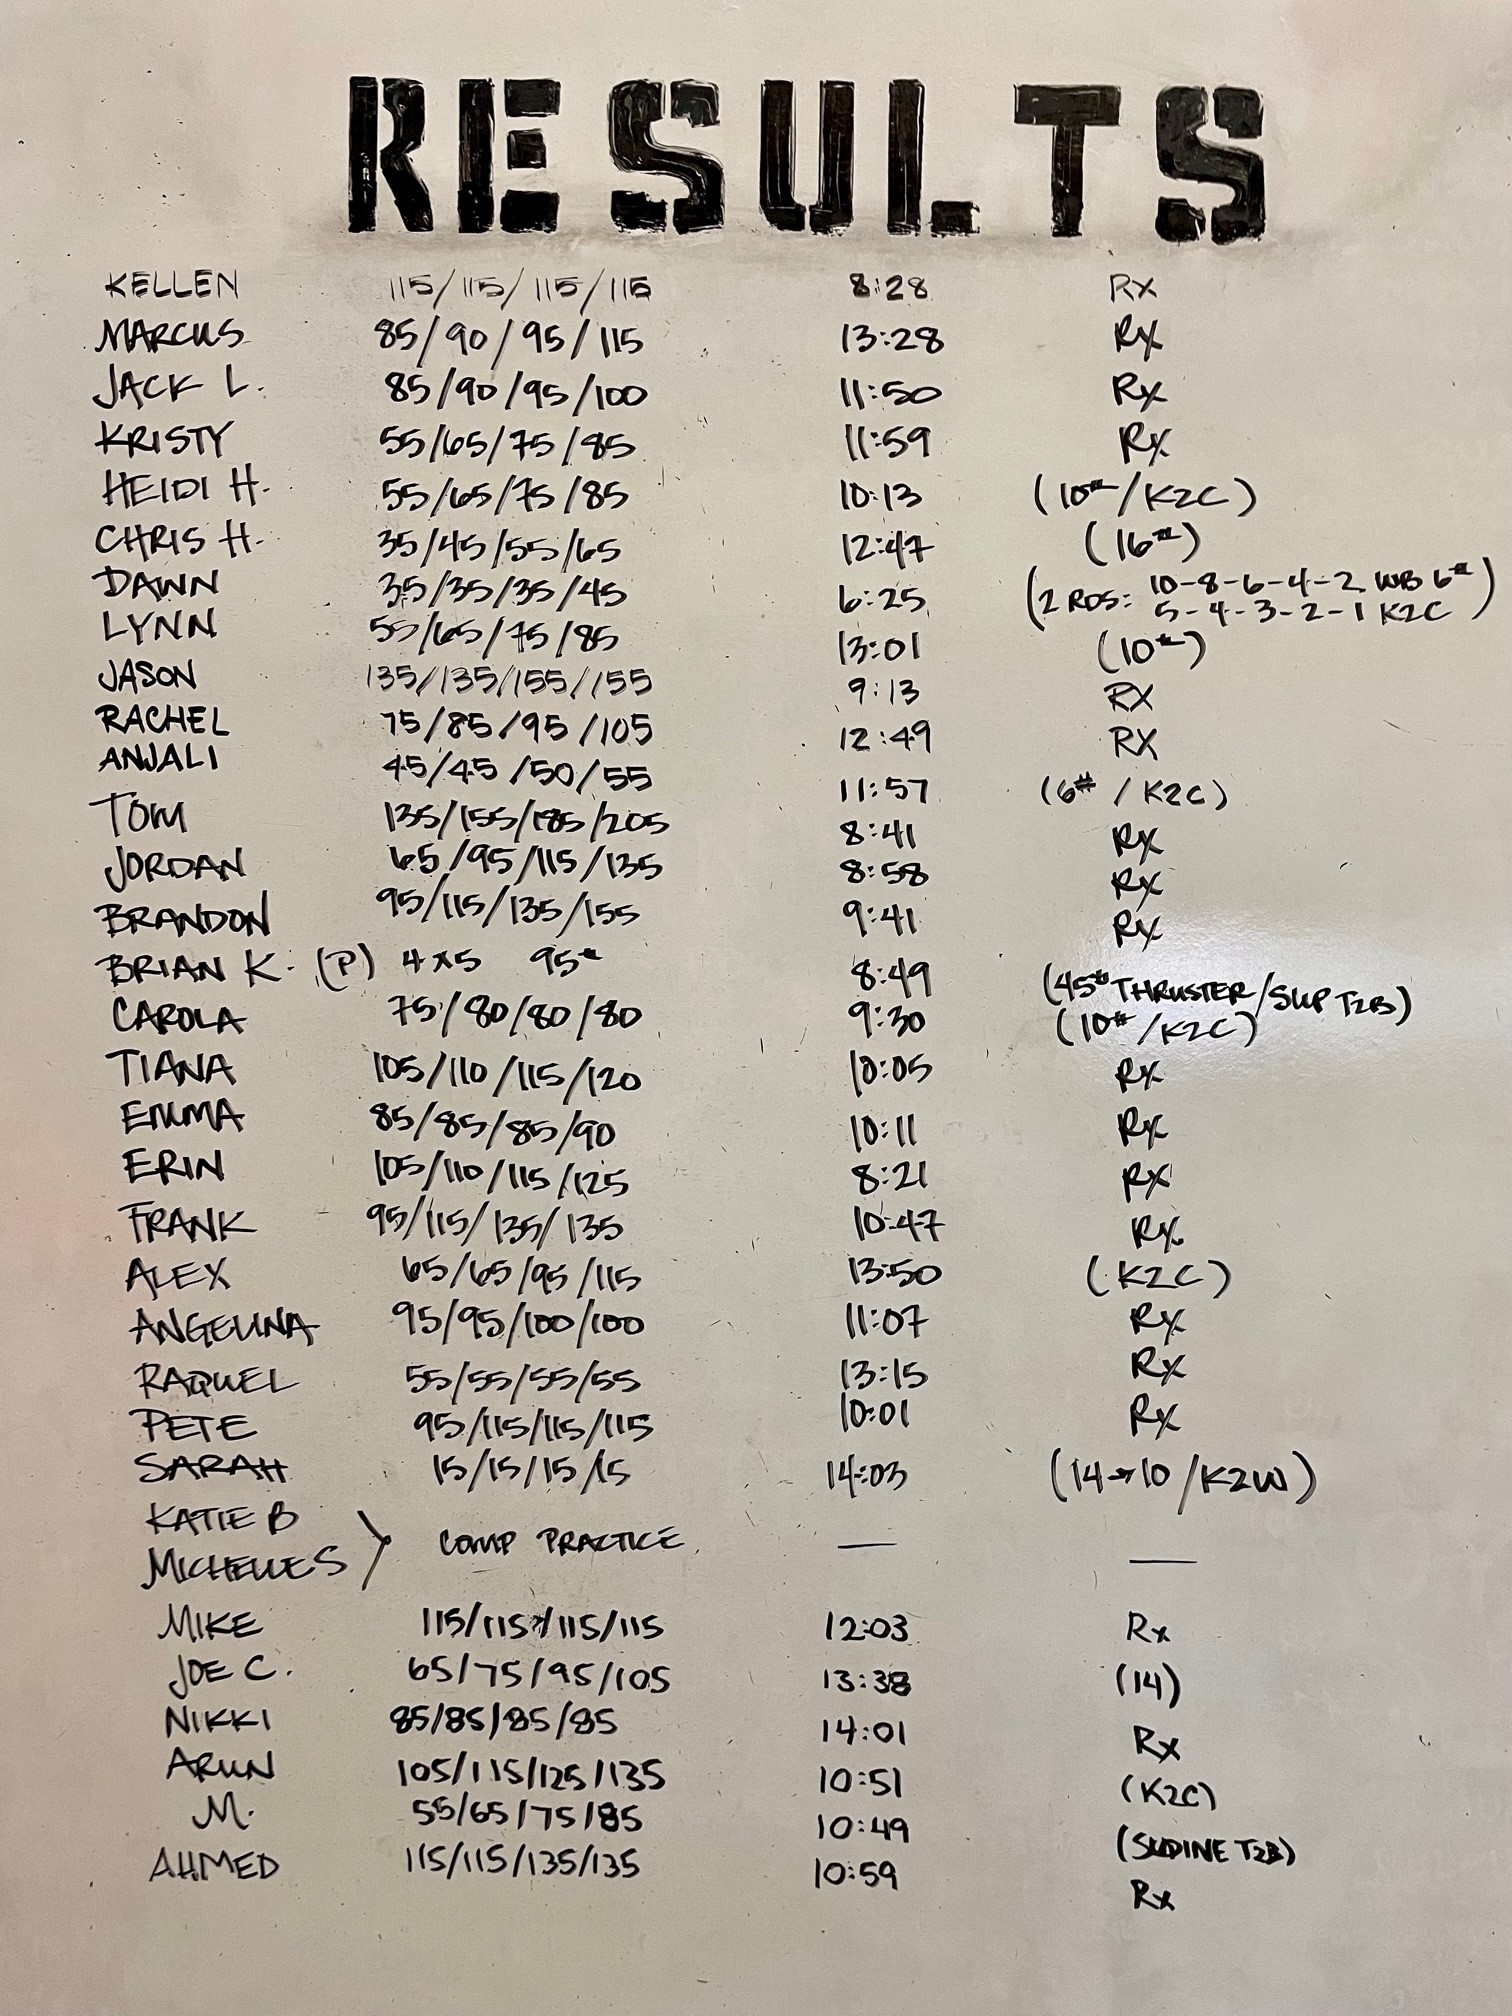 RESULTS
KELLEN 115/115/115/115 8:28 RX
MARCUS 85/90/95/115 13:28 Rx
JACK L. 85/90/95/100 11:50 Rx
KRISTY 55/65/75/85 11:59 Rx
HEIDI H. 55/65/75/85 10:13 (10#/K2C)
CHRIS H. 35/45/55/65 12:47 (16#)
DAWN 35/35/35/45 6:25 (2 RDS: 10-8-6-4-2 WB 6#
5-4-3-2-1 K2C)
LYNN 55/65/75/85 13:01 (10#)
JASON 135/135/155/155 9:13 RX
RACHEL 75/85/95/105 12:49 RX
ANJALI 45/45/50/55 11:57 (6#/K2C)
TOM 135/155/185/205 8:41 Rx
JORDAN 65/95/115/135 8:58 Rx
BRANDON 95/115/135/155 9:41 Rx
BRIAN K. (P) 4x5 95# 8:49 (45# THRUSTER/SUP T2B)
CAROLA 75/80/80/80 9:30 (10#/K2C)
TIANA 105/110/115/120 10:05 Rx
EMMA 85/85/85/90 10:11 Rx
ERIN 105/110/115/125 8:21 Rx
FRANK 95/115/135/135 10:47 Rx
ALEX 65/65/95/115 13:50 (K2C)
ANGELINA 95/95/100/100 11:07 Rx
RAQUEL 55/55/55/55 13:15 Rx
PETE 95/115/115/115 10:01 Rx
SARAH 15/15/15/15 14:03 (14→10/K2W)
KATIE B
MICHELLE S > COMP PRACTICE — —
MIKE 115/115/115/115 12:03 Rx
JOE C. 65/75/95/105 13:38 (14)
NIKKI 85/85/85/85 14:01 Rx
ARUN 105/115/125/135 10:51 (K2C)
M. 55/65/75/85 10:49 (SUPINE T2B)
AHMED 115/115/135/135 10:59 Rx